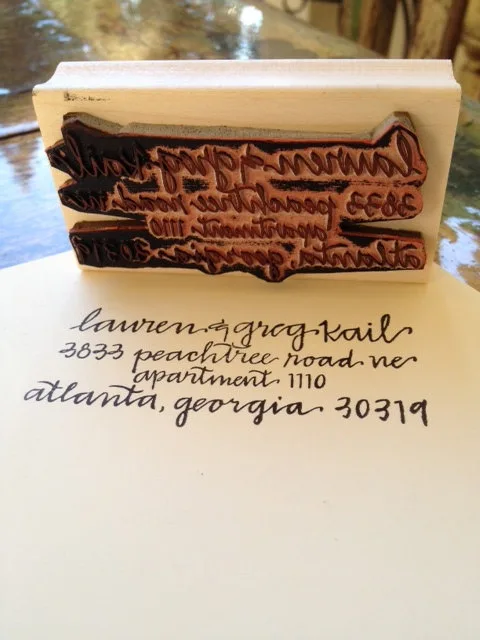 lauren & greg kail
3833 peachtree road ne
apartment 1110
atlanta, georgia 30319